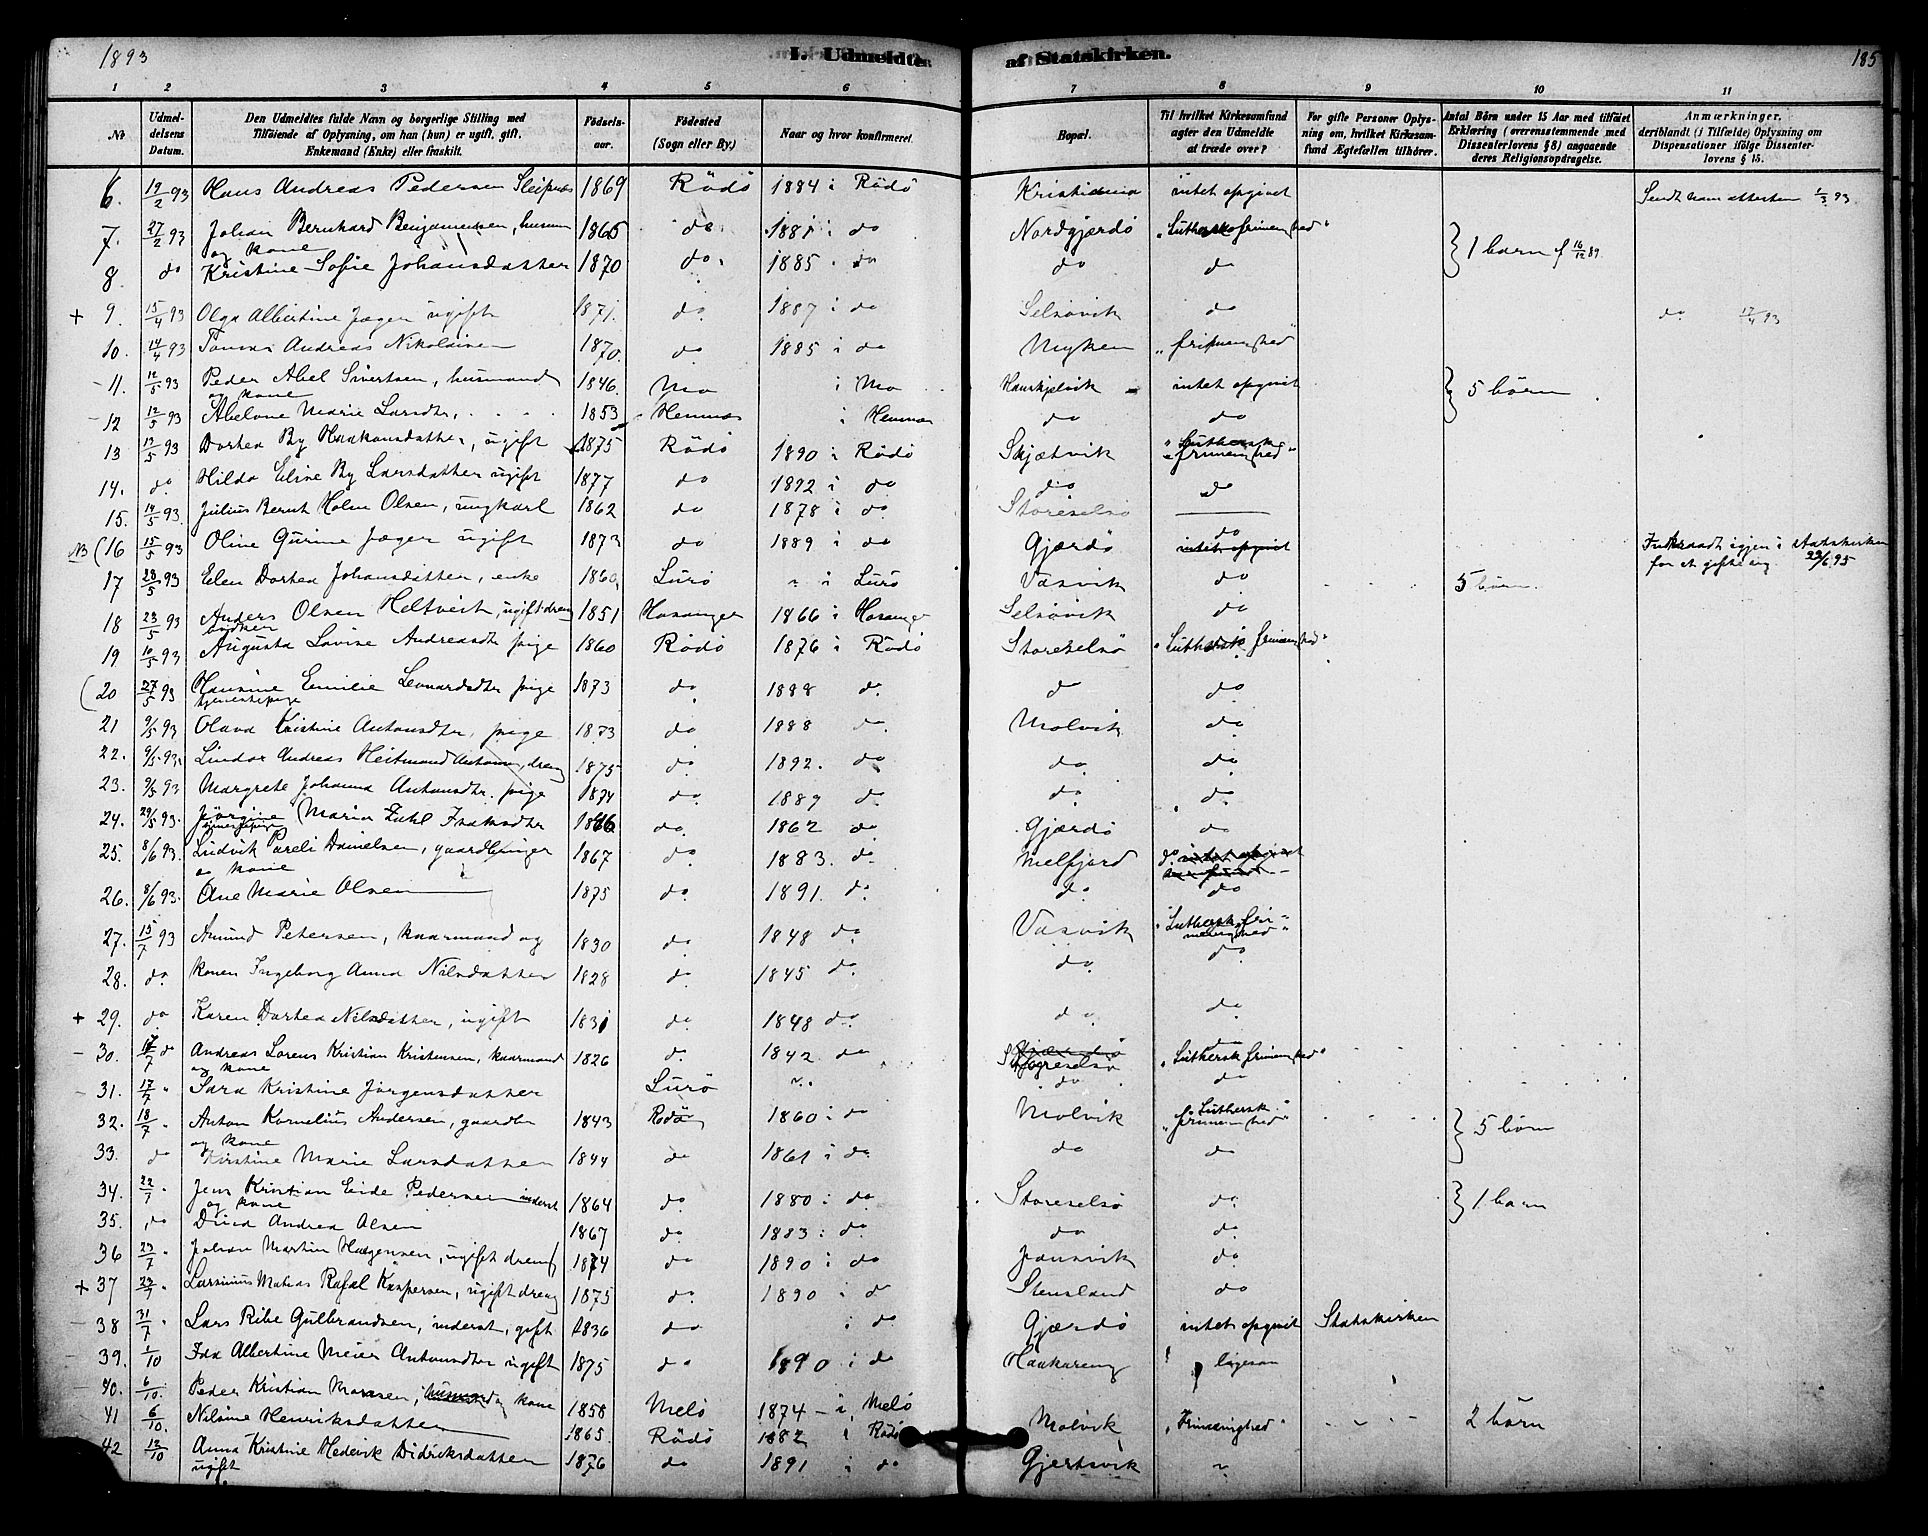 1893 I. Udmeldte af Statskirken. 185
1 2 3 4 5 6 7 8 9 10 11
No Udmeldelsens Datum. Den Udmeldtes fulde Navn og borgerlige Stilling med Tilføiende af Oplysning, om han (hun) er ugift, gift, Enkemand (Enke) eller fraskilt. Fødselsaar. Fødested (Sogn eller By.) Naar og hvor konfirmeret. Bopæl. Til hvilket Kirkesamfund agter den Udmeldte at træde over? For gifte Personer Oplysning om, hvilket Kirkesamfund Ægtefællen tilhører. Antal Børn under 15 Aar med tilføiet Erklæring (overensstemmende med Dissenterlovens § 8) angaaende deres Religionsopdragelse. Anmærkninger, deriblandt (i Tilfælde) Oplysning om Dispensationer ifølge Dissenterlovens § 15.
6. 19/2 93 Hans Andreas Pedersen Sleipnes 1869 Rødø 1884 i Rødø Kristiania intet opgivet Sendt ham attesten 1/3 93
7. 27/2 93 Johan Bernhard Benjaminsen, husmand og kone 1865 do 1881 i do Nordgjærdø "Luthersk frimenighed" 1 barn f 16/12 89
8. do Kristine Sofie Johansdatter 1870 do 1885 do do do
+ 9. 15/4 93 Olga Albertine Jæger ugift 1871 do 1887 i do Selsøvik do do 17/4 93
10. 14/4 93 Tomas Andreas Nikolaisen 1870 do 1885 i do Myken "frimenighed"
- 11. 12/5 93 Peder Abel Sivertsen, husmand og kone 1846 Mo i Mo intet opgivit 5 børn
- 12 12/5 93 Abelone Marie Larsdtr. 1853 Hemnes i Hemnes do do
13 12/5 93 Dortea By Haakonsdatter, ugift 1875 Rødø 1890 i Rødø Skjætvik "Luthersk frimenighed"
14. do Hilda Eline By Larsdatter ugift 1877 do 1892 i do do do
15. 14/5 93. Julius Bernt Holm Olsen, ungkarl 1862 do 1878 i do Storeselsø
NB (16 15/5 93 Oline Gurine Jæger ugift 1873 do 1889 i do Gjærdø do intet opgivit Indtraadt igjen i statskirken for at gifte sig 22/6 95
17 23/5 93 Elen Dortea Johansdatter, enke 1860 Lurø " i Lurø Vasvik do 5 børn.
18 23/5 93 Anders Olsen Heltveit, ugift dreng 1851 Hosanger 1866 i Hosanger Selsøvik do
19 10/5 93 Augusta Lovise Andreasdtr pige 1860 Rødø 1876 i Rødø Storeselsø "Luthersk frimenighed"
(20 27/5 93 Hansine Emilie Leonardsdtr pige tjenestepige 1873 do 1888 do do do
21 9/5 93 Olava Kristine Antonsdtr, pige 1873 do 1888 do Molvik do
22. 9/5 93. Lindor Andreas Heitmand Antonsen, dreng 1875 do 1892. do do do
23. 9/5 93 Margrete Johanna Antonsdtr. pige 1874 do 1889 do do do
24. 29/5 93. Jørgine Maria Zahl Isaksdtr 1846 do 1862 do Gjærdø do
25. 8/6 93. Ludvik Pareli Danielsen, gaardbruger og kone 1867 do 1883. do Melfjord do intet opgivet
26. 8/6 93. Ane Marie Olsen 1875 do 1891. do do do
27. 15/7 93 Amund Petersen, kaarmand og 1830 do 1848 do Vasvik "Luthersk frimenighed"
28. do konen Ingeborg Anna Nilsdatter 1828 do 1845 do do do
+ 29. do Karen Dortea Nilsdatter, ugift 1831 do 1848 do do do
- 30. 17/7 do Andreas Lorens Kristian Kristensen, kaarmand og kone 1826 do 1842 do Storeselsø do "Luthersk frimenighed"
- 31. 17/7 " Sara Kristine Jørgensdatter Lurø " do do
32. 18/7 " Anton Kornelius Andersen, gaardbr og kone 1843 Rødø 1860 i do Molvik "Luthersk frimenighed" 5 børn
33. do Kirstine Marie Larsdatter 1844 do 1861 i do do do
34. 22/7 " Jens Kristian Eide Pedersen inderst og kone 1864 do 1880 i do Storeselsø do 1 barn
35. do Dina Andrea Olsen 1867 do 1883 i do do do
36 23/7 " Johan Martin Hagensen, ugift dreng 1874 do 1890 i do Jonsvik do
+ 37 27/7 " Larsinius Matias Rafal Kaspersen, ugift dreng 1875 do 1890 i do Stensland do
- 38 31/7 " Lars Ribe Gulbrandsen, inderst, gift 1836 do i do Gjærdø intet opgivit Statskirken
- 39. 1/10 Ida Albertine Meier Antonsdtr ugift 1875 do 1890 i do Haakareng ligesaa
- 40. 6/10. Peder Kristian Monsen, husmand og kone 1858 Melø 1874 i Melø Molvik "Frimenighed" 2 børn
41 6/10. Nilsine Henriksdatter 1865. Rødø 1882 i Rødø
42 12/10 Anna Kristine Hedevik Didriksdatter ugift 1876 do 1891 i do Gjertsvik "